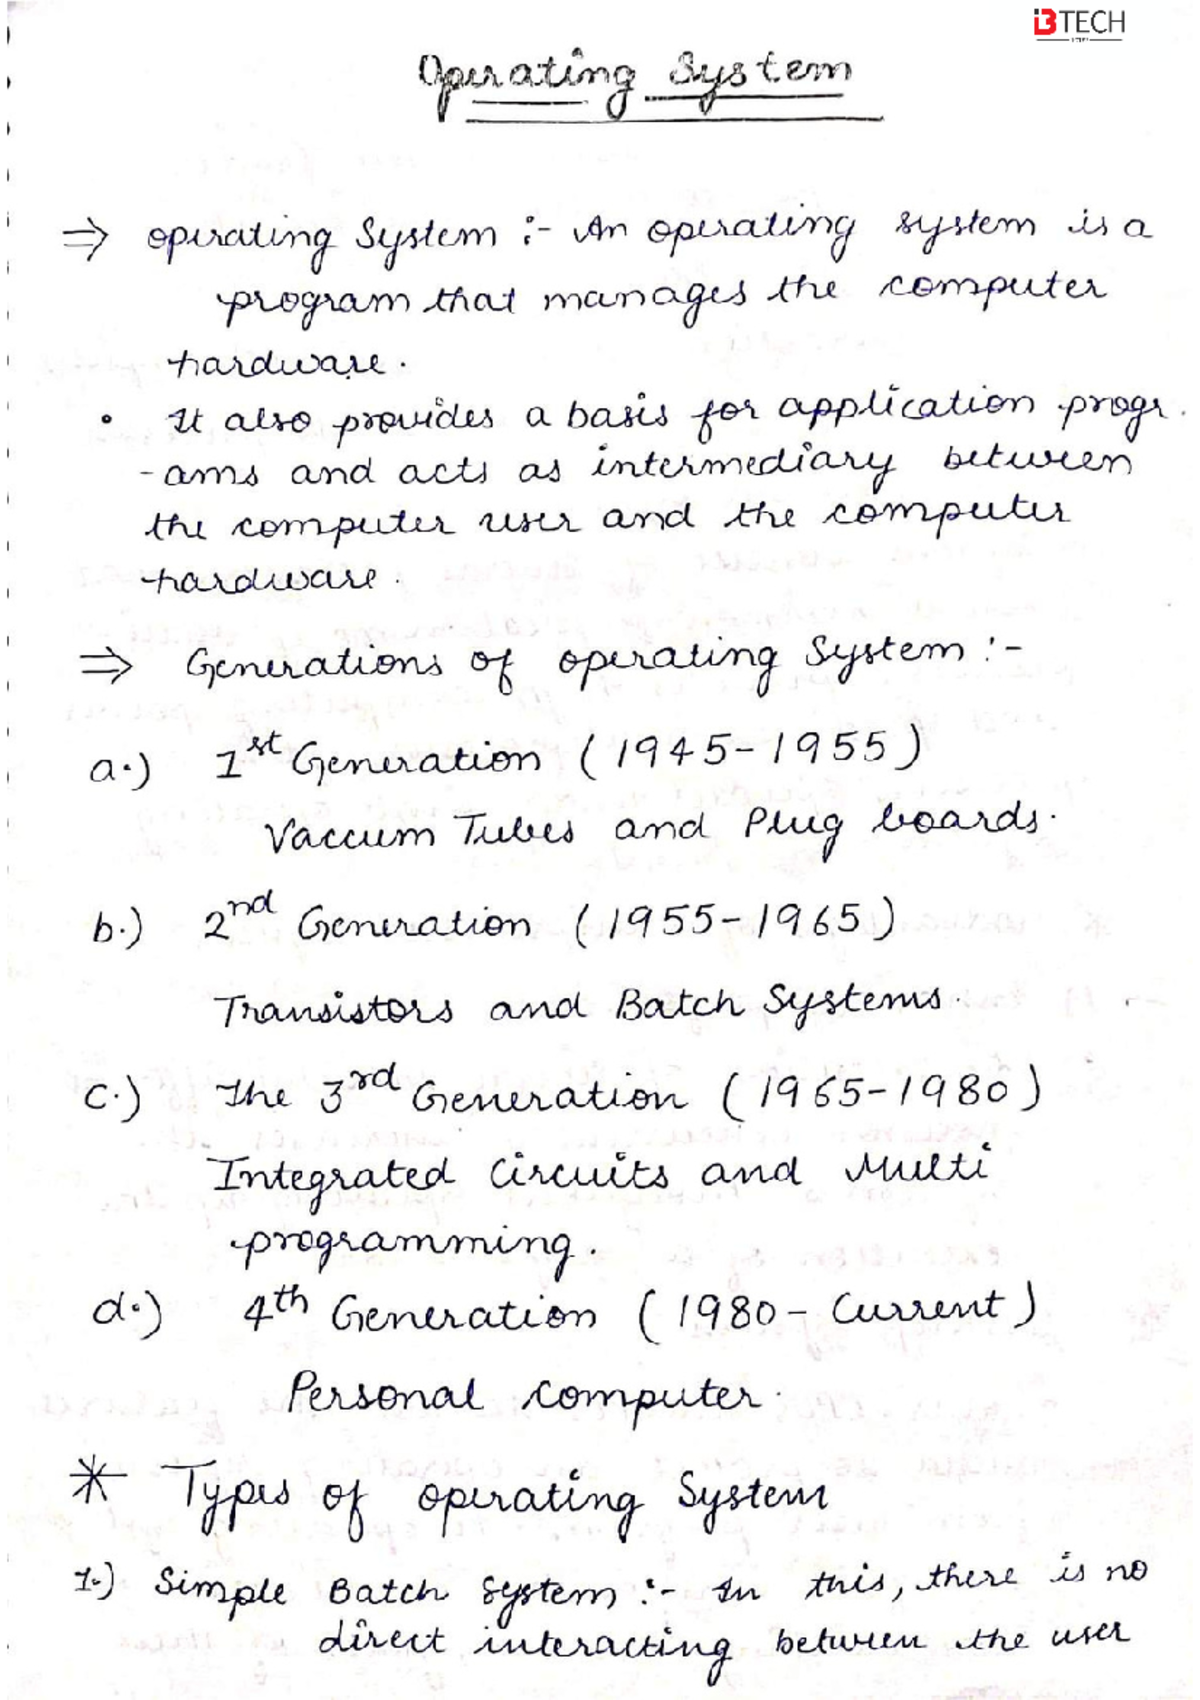 BTECH
Operating System
⇒ operating System :- An operating system is a
program that manages the computer
hardware.
• It also provides a basis for application progr.
-ams and acts as intermediary between
the computer user and the computer
hardware.
⇒ Generations of operating System :-
a.) 1st Generation (1945-1955)
Vaccum Tubes and Plug boards.
b.) 2nd Generation (1955-1965)
Transistors and Batch Systems.
c.) The 3rd Generation (1965-1980)
Integrated Circuits and Multi
programming.
d.) 4th Generation (1980- Current)
Personal Computer.
* Types of operating System
1.) Simple Batch System :- In this, there is no
direct interacting between the user